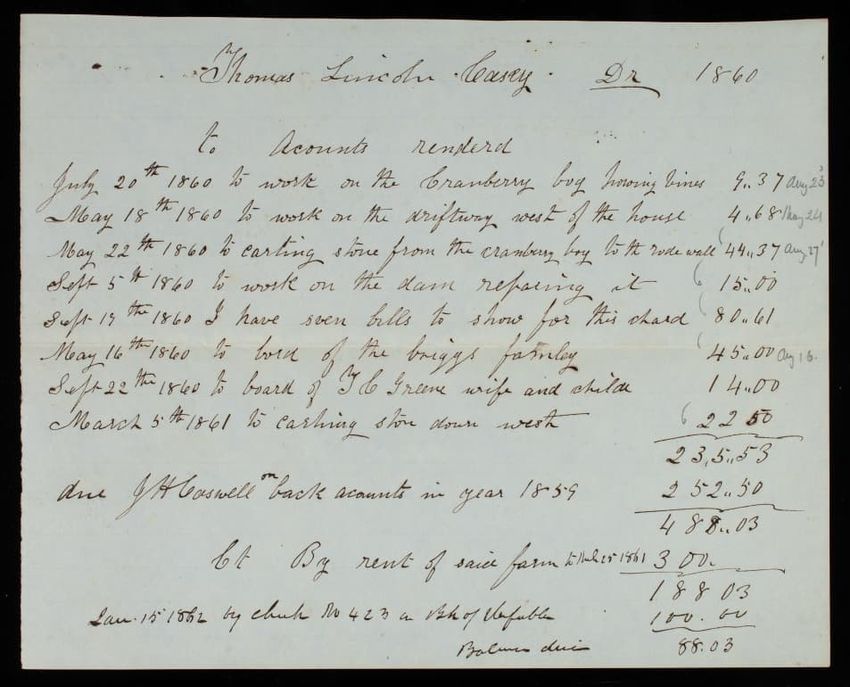 Thomas Lincoln Casey. Dr 1860
to Acounts renderd
July 20th 1860 to work on the Cranberry bog howing vines 9..37 Aug 23
May 18th 1860 to work on the driftway west of the house 4..68 May 24
May 22th 1860 to carting stone from the cranberry bog to th rode wall 44..37 Aug. 27
Sept 5th 1860 to work on the dam repairing it 15..00
Sept 17the 1860 I have seven bills to show for this chard 80..61
May 16th 1860 to bord of the briggs famley 45..00 Aug 16.
Sept 22the 1860 to board of T C Greene wife and childe 14..00
March 5th 1861 to carting ston down west 22 50
235..53
due J H Caswell on back acounts in year 1859 252..50
488..03
Ct By rent of said farm to Mch 25 1861 300.
188 03
Jan. 15 1862 by check No 423 on Bk of Republic 100.00
Balance due 88.03